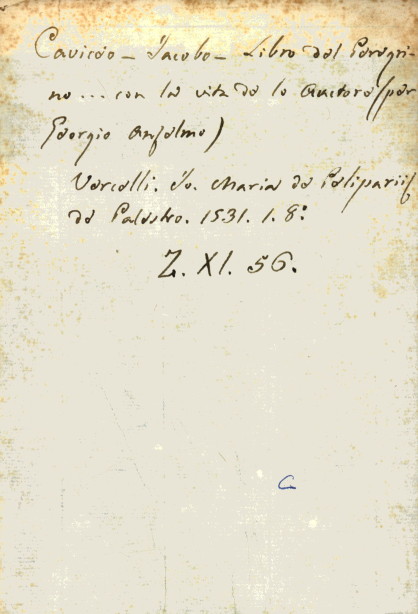 Caviceo - Jacobo - Libro del Peregri-
no ... con la vita de lo Auctore (per
Georgio Anselmo)
Vercelli. Jo. Maria de Pelipariis
de Palestro. 1531. 1. 8º
Z. XI. 56.
C